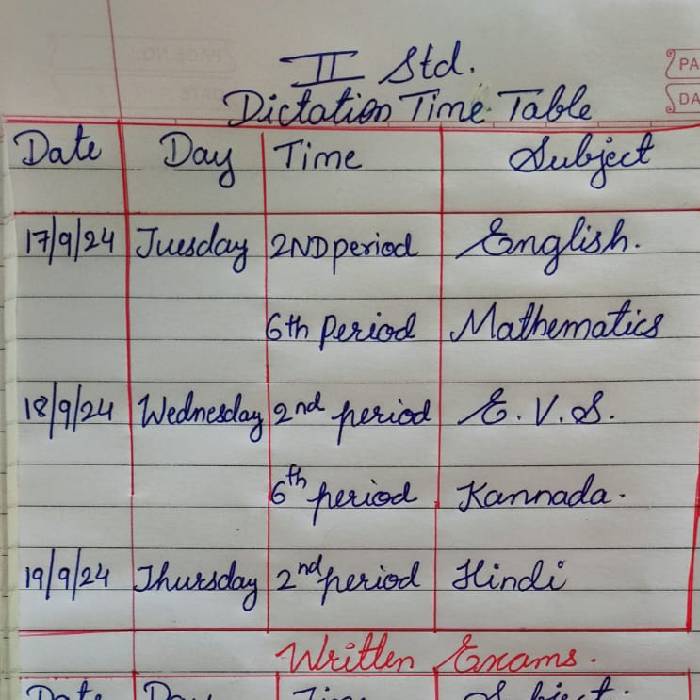 II Std.
Dictation Time Table
Date Day Time Subject
17/9/24 Tuesday 2ND period English.
6th Period Mathematics
18/9/24 Wednesday 2nd period E.V.S.
6th period Kannada.
19/9/24 Thursday 2nd period Hindi
Written Exams.
Date Day Time Subject
PA
DA